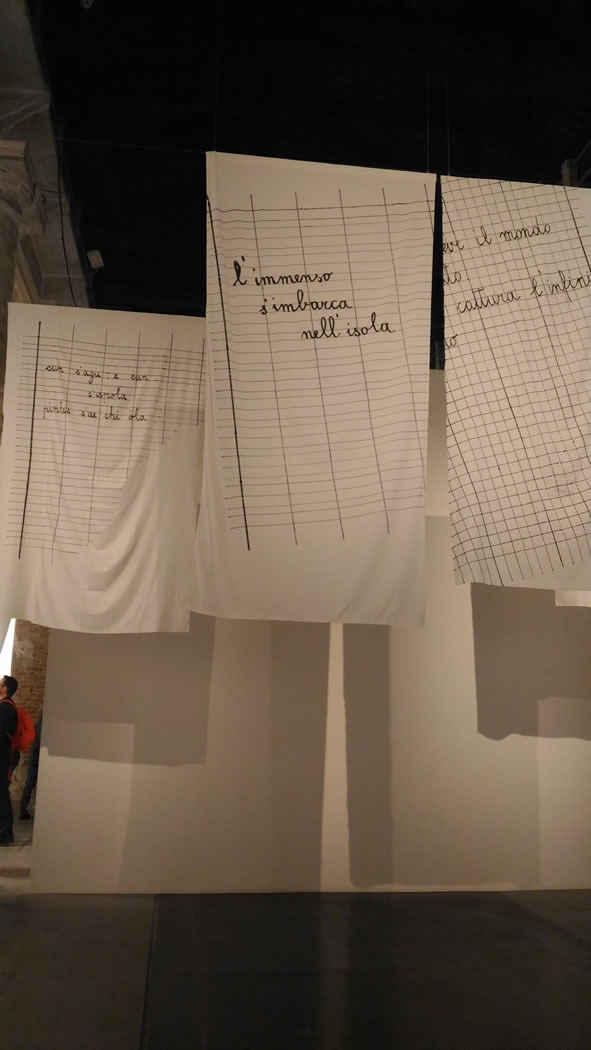 cun s'agu e cun
s'isnola
pintas sae chi ola
l'immenso
s'imbarca
nell'isola
eve il mondo
to
cattura l'infini